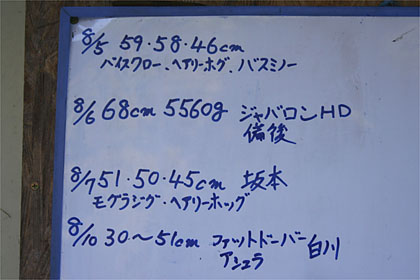 8/5 59・58・46cm
バイズクロー、ヘアリーホグ、バスミノー
8/6 68cm 5560g ジャバロンHD
備後
8/7 51・50・45cm 坂本
モグラジグ・ヘアリーホッグ
8/10 30〜51cm ファットドーバー 白川
アシュラ